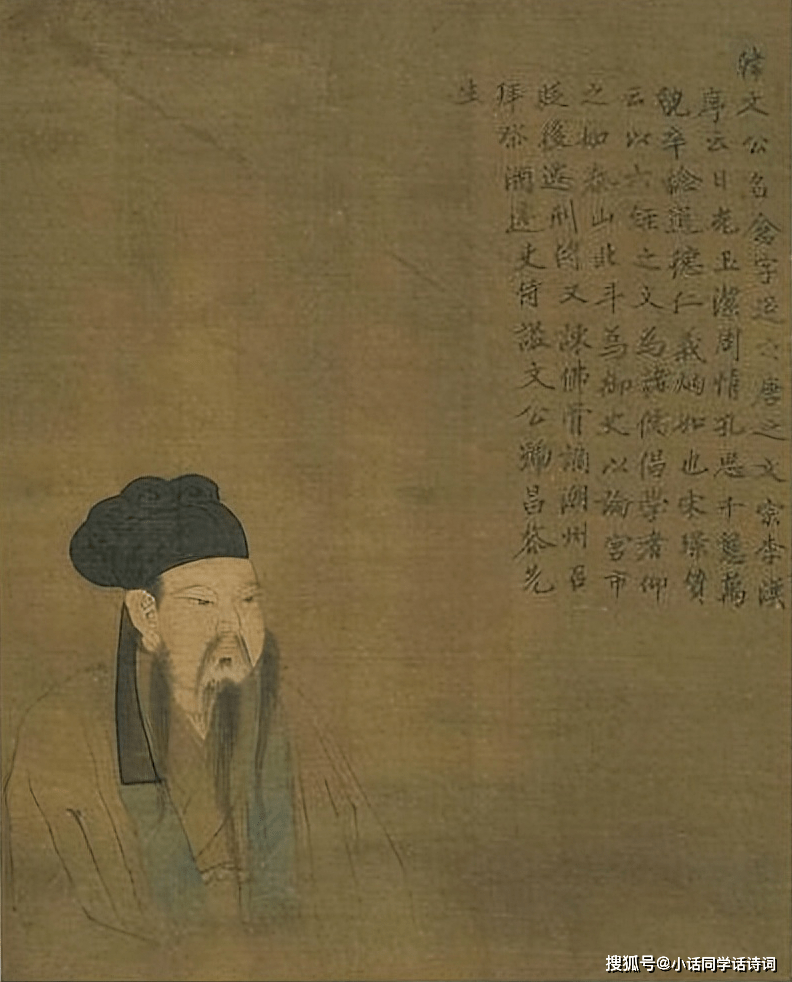 韓文公名愈字退之唐之文宗李漢
序云日光玉潔周情孔思千態萬
貌卒道德仁義炳如也宋璟贊
云以六經之文為諸儒倡學者仰
之如泰山北斗為御史以論宮市
貶後遷刑侍又諫佛骨謫潮州召
拜祭酒遷吏侍諡文公號昌黎先
生
搜狐号@小话同学话诗词